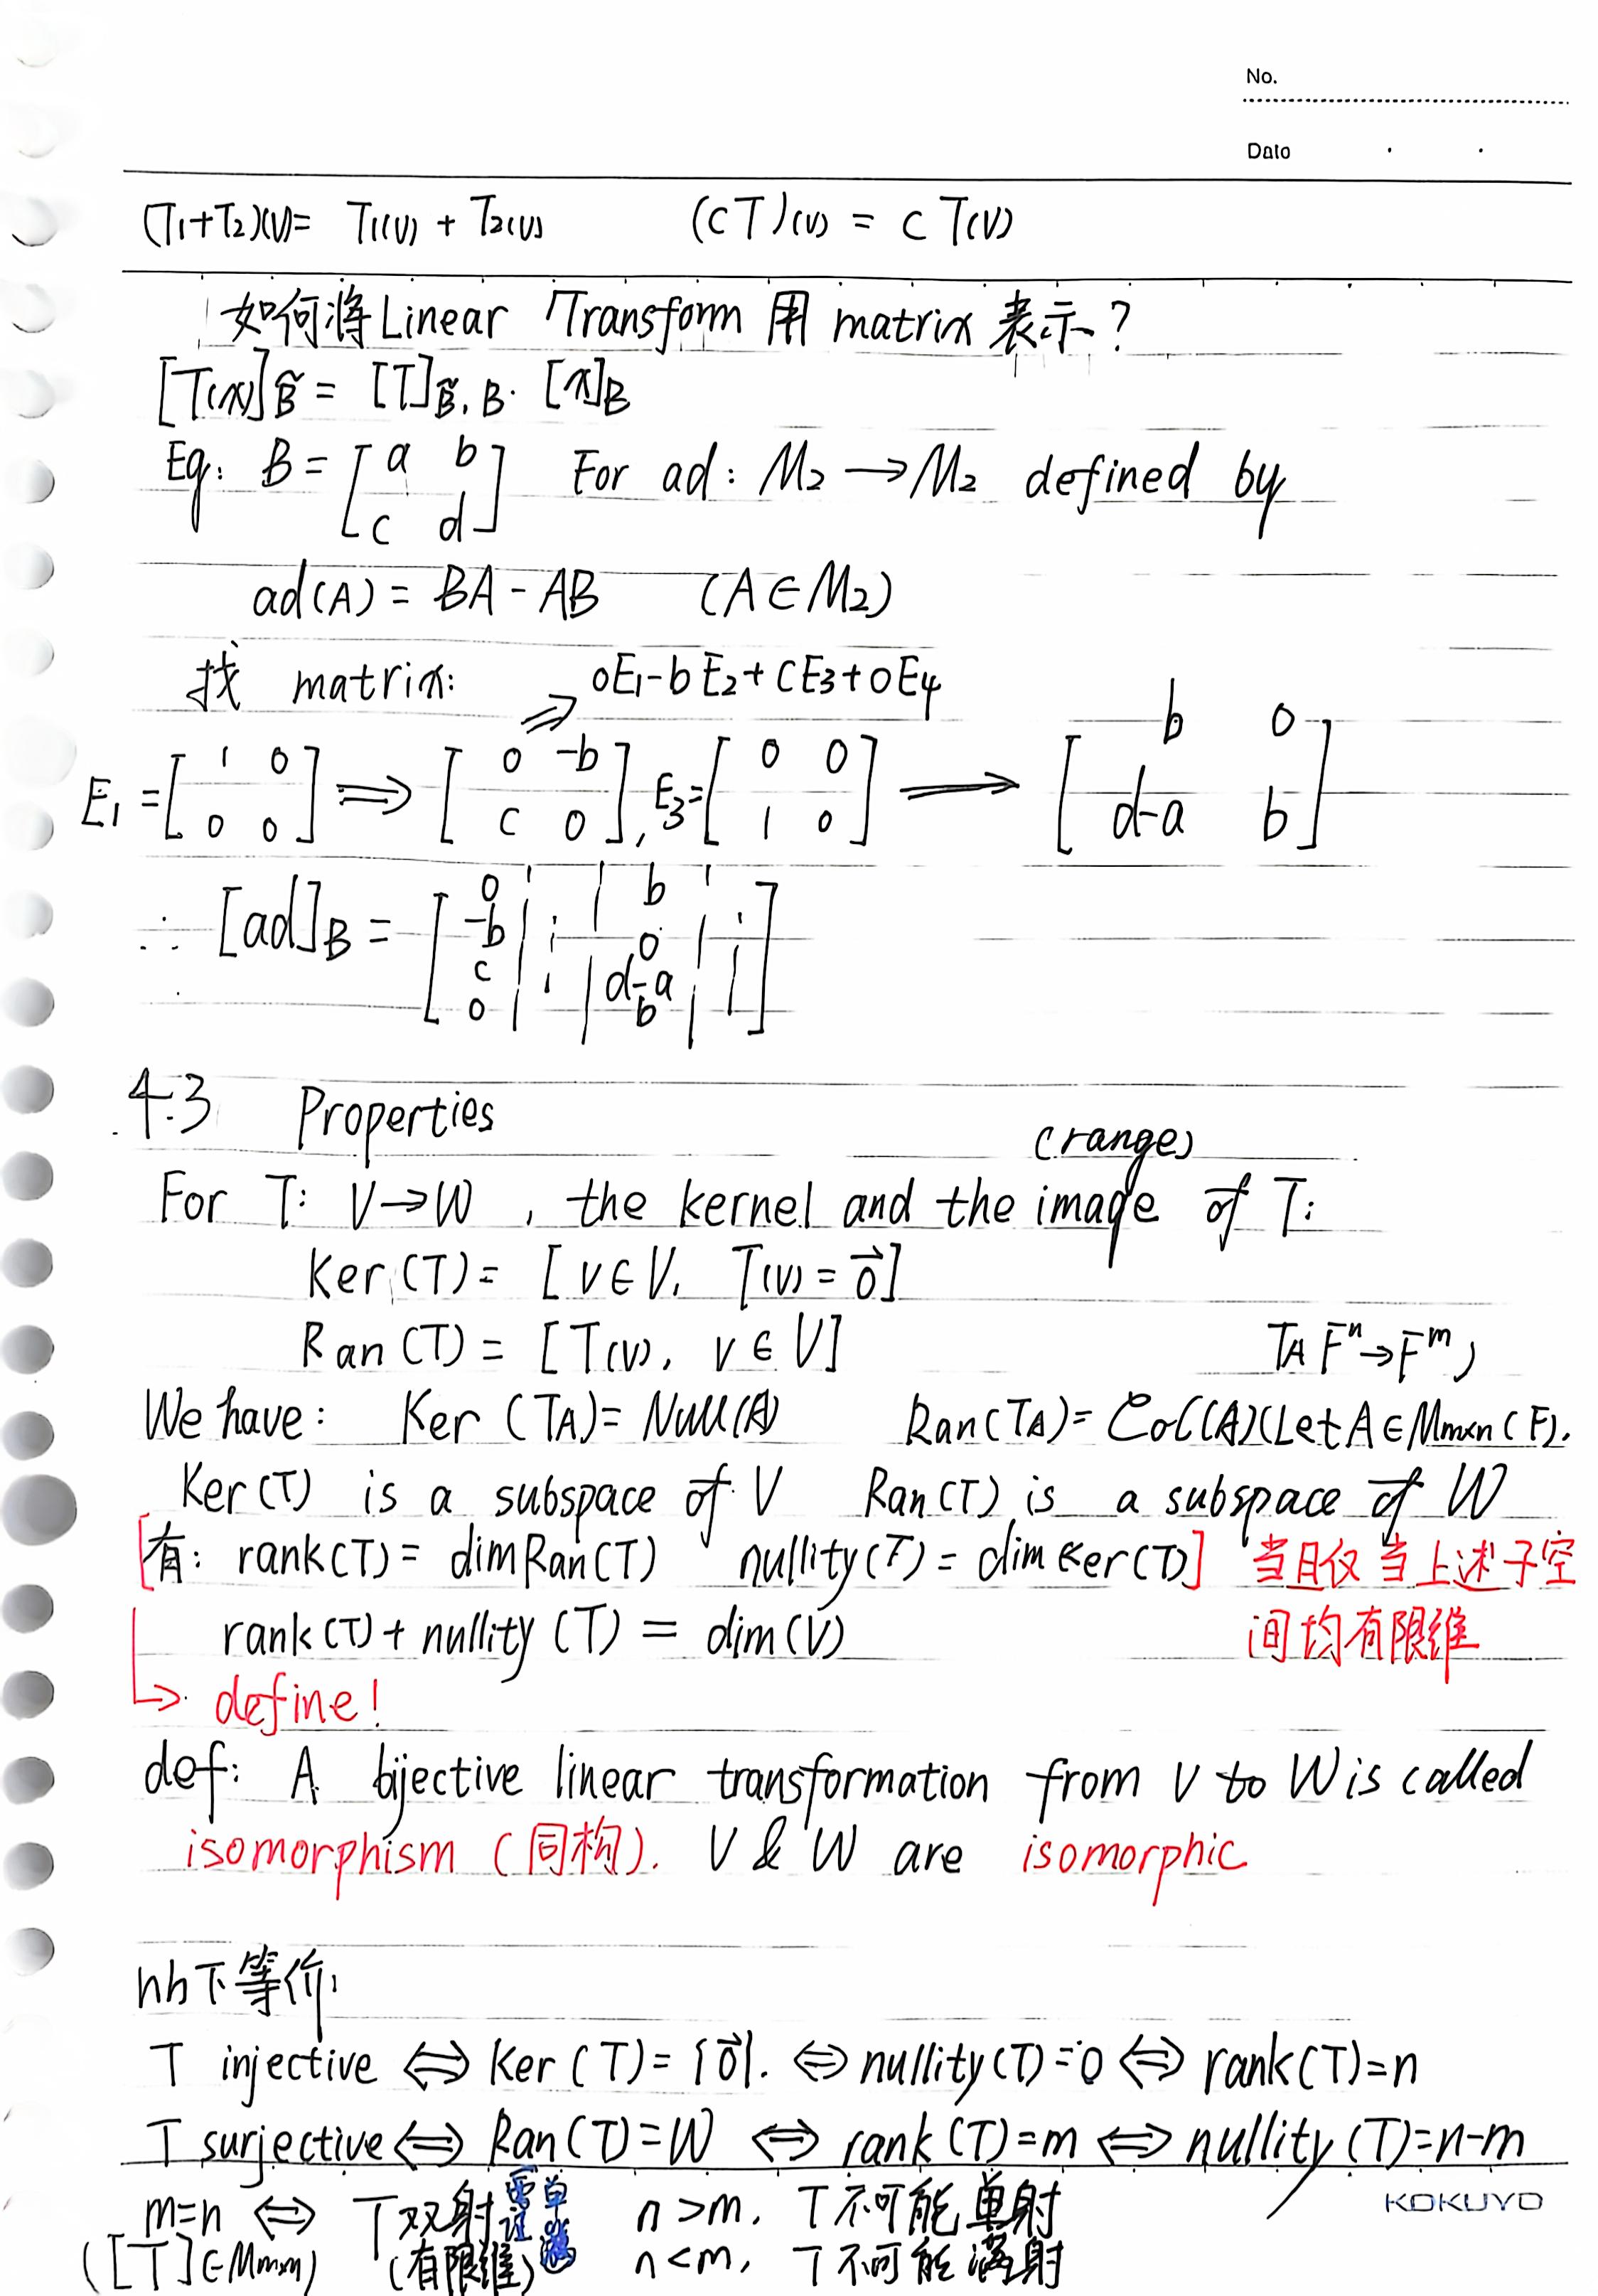 No.
Date
(T₁+T₂)(v)= T₁(v) + T₂(v) (cT)(v) = c T(v)
如何将Linear Transform 用 matrix 表示?
[T(x)]B̃ = [T]B̃,B· [x]B
Eg: B = [a b; c d] For ad: M₂→M₂ defined by
ad(A) = BA - AB (A∈M₂)
找 matrix: ⇒ 0E₁-bE₂+cE₃+0E₄
E₁ = [1 0; 0 0] ⇒ [0 -b; c 0], E₃= [0 0; 1 0] → [b 0; d-a b]
∴ [ad]B = [0 -b c 0 | ⋮ | b 0 d-a b | ⋮]
4.3 Properties
(range)
For T: V→W, the kernel and the image of T:
Ker(T) = [v∈V, T(v)=0⃗]
Ran(T) = [T(v), v∈V] TA Fⁿ→Fᵐ)
We have: Ker(TA)= Null(A) Ran(TA)= Col(A)(Let A∈Mmxn(F).
Ker(T) is a subspace of V Ran(T) is a subspace of W
[有: rank(T) = dimRan(T) nullity(T) = dimKer(T)] 当且仅当上述子空
rank(T) + nullity(T) = dim(V) 间均有限维
↳ define!
def: A bijective linear transformation from V to W is called
isomorphism (同构). V & W are isomorphic
以下等价:
T injective ⇔ Ker(T)= {0⃗}. ⇔ nullity(T)=0 ⇔ rank(T)=n
T surjective ⇔ Ran(T)=W ⇔ rank(T)=m ⇔ nullity(T)=n-m
m=n ⇔ T双射 需证单满 n>m, T不可能单射
([T]∈Mmxn) (有限维) n<m, T不可能满射
KOKUYO